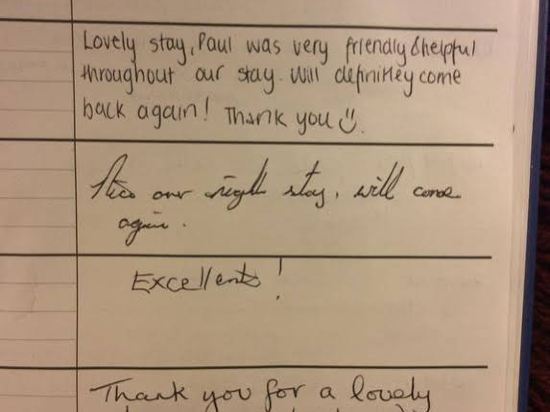 Lovely stay, Paul was very friendly & helpful
throughout our stay. Will definitley come
back again! Thank you
stay, will come
again.
Excellents!
Thank you for a lovely